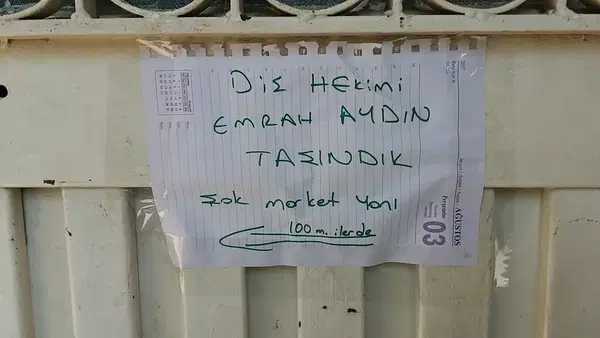 DİŞ HEKİMİ
EMRAH AYDIN
TAŞINDIK
Şok market yanı
100 m. ilerde
2017
AĞUSTOS
Perşembe
03